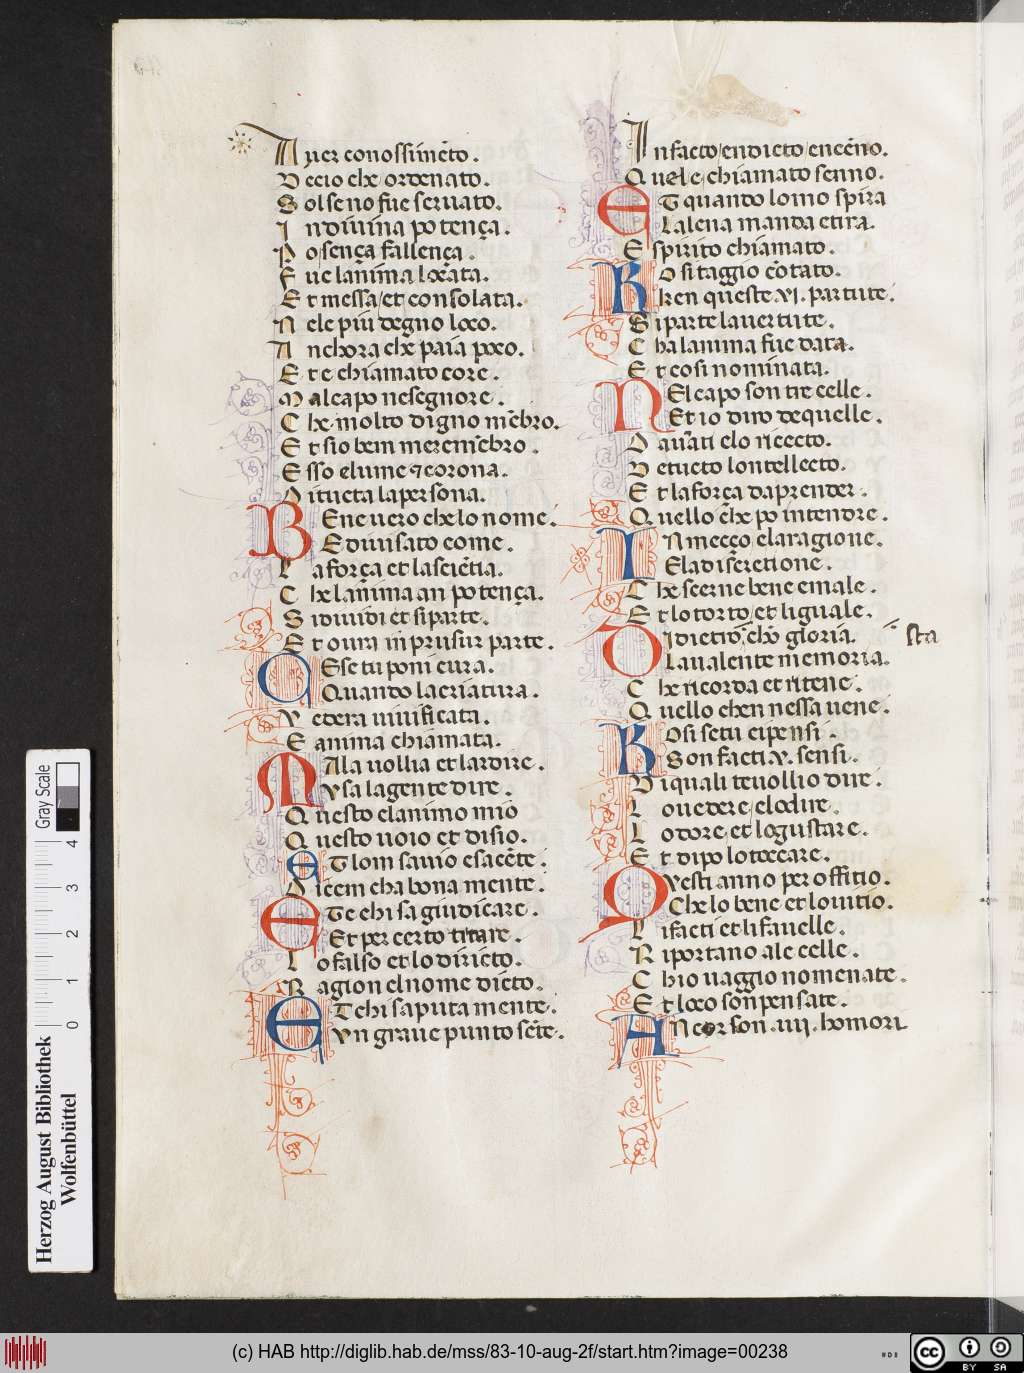 A uer conossimēto .
D ecio che ordenato .
S ol seno fue seruato .
I n diuina potença .
P o sença fallença .
F ue lanima locata .
E t messa et consolata .
N ele piu degno loco .
A nchora che paia poco .
E t e chiamato core .
M alcapo ne segnore .
C he molto digno mēbro .
E t sio bem meremēbro .
E sso elume ⁊ corona .
D i tucta la persona .
B Ene uero che lo nome .
E diuisato come .
L a força et la sciētia .
C he lanima an potença .
S idiuidi et siparte .
E t oura in plusur parte .
C Sse tu poni cura .
Quando la criatura .
V edera uiuificata .
E anima chiamata .
M Ala uollia et lardire .
Vsa la gente dire .
Q uesto elanimo mio
Q uesto uoio et disio .
E T lom sauio e sacēte .
D icem cha bona mente .
E Te chi sa giudicare .
Et per certo titare .
L o falso et lo diricto .
R agion el nome dicto .
E T chi saputa mente .
Vn graue punto sēte .
I n facto en dicto en cēno .
Q uele chiamato senno .
E T quando lomo spira
La lena manda e tira .
E spirito chiamato .
K o si taggio cōtato .
Ken queste .vi. partute .
S iparte la uertute .
C ha lanima fue data .
E t cosi nominata .
N El capo son tre celle .
Et io diro de quelle .
D auāti elo ricecto .
D etucto lontellecto .
E t la força daprender .
Q uello che po intendre .
I N meçço e la ragione .
E la discretione .
C he scerne bene e male .
E t lo torto et liguale .
D I dietro cō gloria . sta
La ualente memoria .
C he ricorda et ritene .
Q uello chen nessa uene .
K Osi se tu ei pensi .
Son facti .v. sensi .
D i quali te uollio dire .
L o uedere e lodire .
L odore et lo gustare .
E t dipo lo toccare .
Q Vesti anno per offitio .
Che lo bene et lo uitio .
L i facti et li fauelle .
R iportano a le celle .
C hio uaggio nomenate .
E t loco son pensate .
A Ncor son .iiii. homori
Herzog August Bibliothek
Wolfenbüttel
Gray Scale
0 1 2 3 4
(c) HAB http://diglib.hab.de/mss/83-10-aug-2f/start.htm?image=00238
cc BY SA